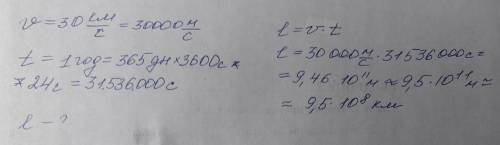 v = 30 км/с = 30000 м/с
t = 1 год = 365 дн × 3600с ×
× 24с = 31536000с
l - ?
l = v · t
l = 30000 м/с · 31536000с =
= 9,46 · 10¹¹ м ≈ 9,5 · 10¹¹ м ≃
≈ 9,5 · 10⁸ км